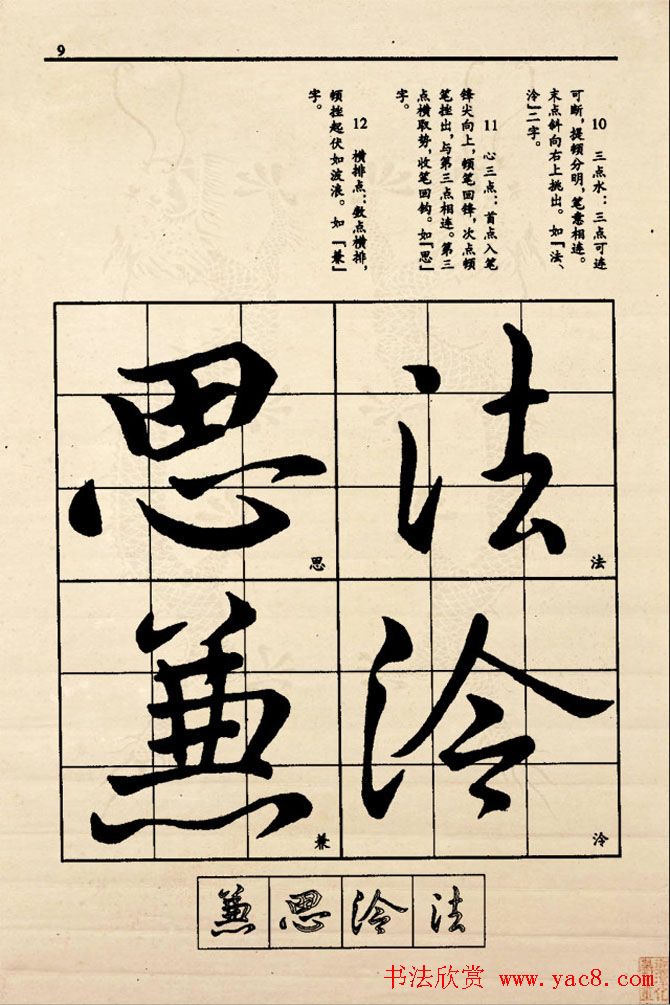 9
10 三点水：三点可连
可断，提顿分明，笔意相连。
末点斜向右上挑出。如「法、
泠」二字。
11 心三点：首点入笔
锋尖向上，顿笔回锋，次点顿
笔挫出，与第三点相连。第三
点横取势，收笔回钩。如「思」
字。
12 横排点：数点横排，
顿挫起伏如波浪。如「兼」
字。
法
法
泠
泠
思
思
兼
兼
兼 思 泠 法
书法欣赏 www.yac8.com